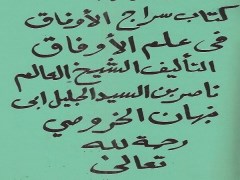 كتاب سراج الأوفاق
فى علم الأوفاق
التأليف الشيخ العالم
ناصر بن السيد الجليل ابى
نبهان الخروصي
رحمة لله
تعالى